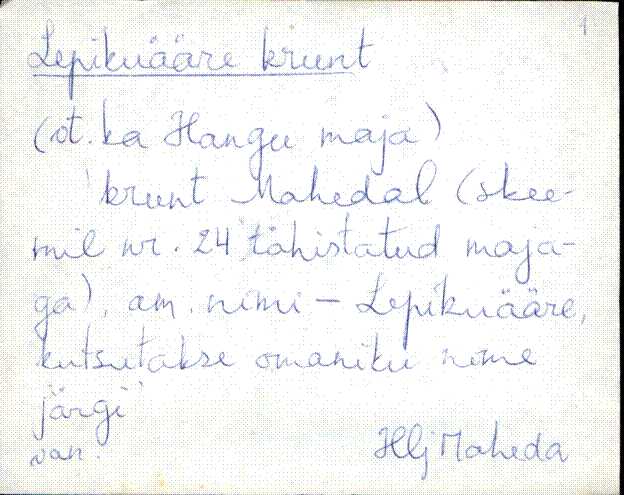 1
Lepikuääre krunt
(vt. ka Hangu maja)
krunt Mahedal (skee-
mil nr. 24 tähistatud maja-
ga), am. nimi – Lepikuääre,
kutsutakse omaniku nime
järgi
van. Hlj Maheda